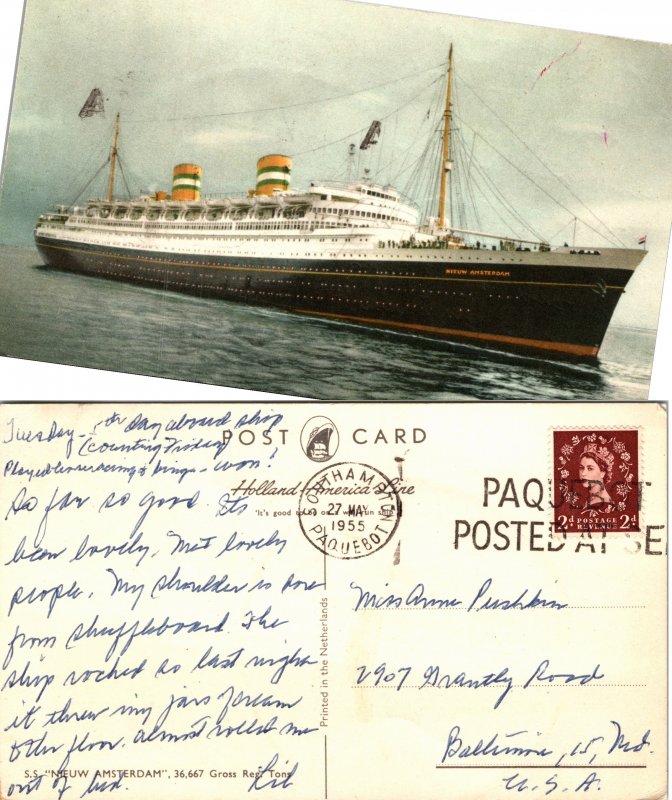 NIEUW AMSTERDAM
Tuesday - 5th day aboard ship
(counting Friday)
Played horseracing & bingo - won!
POST CARD
Holland-America Line
'It's good to be on a well-run ship'
SOUTHAMPTON
27 MAY
1955
PAQUEBOT
PAQUEBOT
POSTED AT SE
2d POSTAGE REVENUE 2d
So far so good. Its
been lovely. Met lovely
people. My shoulder is sore
from shuffleboard. The
ship rocked so last night
it threw my jars of cream
on the floor. Almost rolled me
out of bed. Lil
Printed in the Netherlands
S.S. "NIEUW AMSTERDAM", 36,667 Gross Reg. Tons
Miss Anne Pushkin
2907 Grantly Road
Baltimore, 15, Md.
U.S.A.